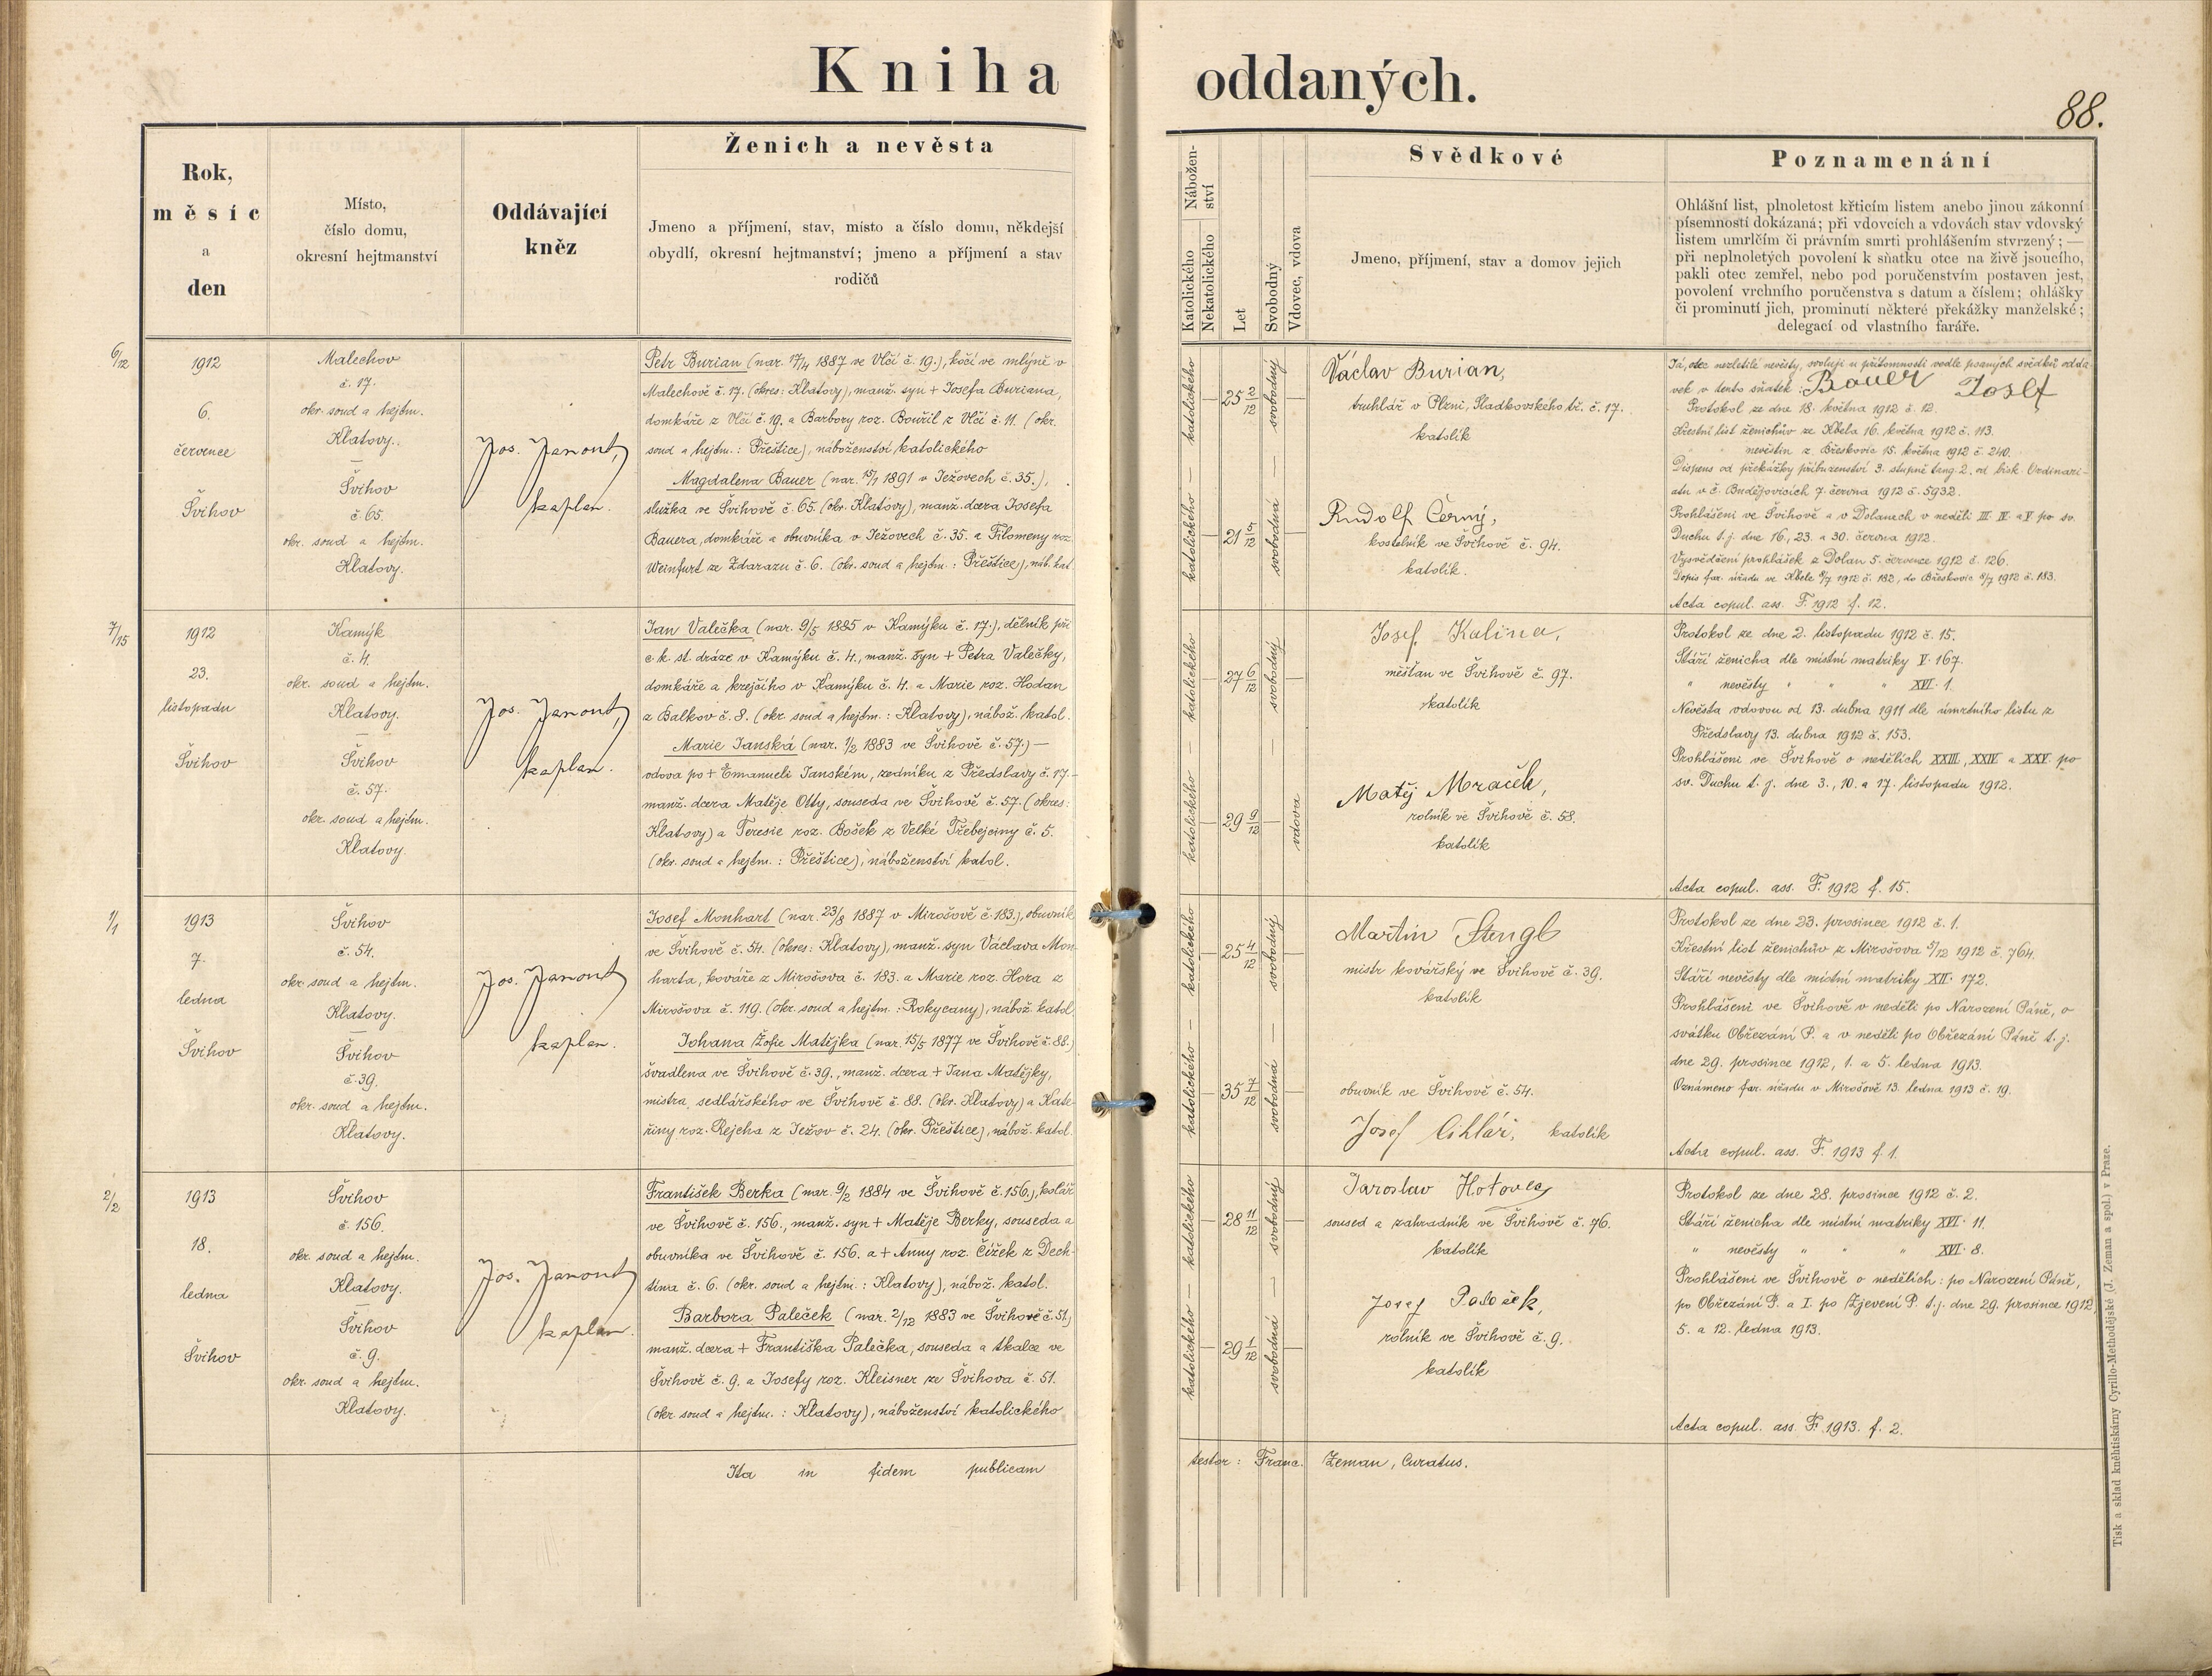 Kniha oddaných.
88.
Rok,
měsíc
a
den
Místo,
číslo domu,
okresní hejtmanství
Oddávající
kněz
Ženich a nevěsta
Jmeno a příjmení, stav, místo a číslo domu, někdejší
obydlí, okresní hejtmanství; jmeno a příjmení a stav
rodičů
Nábožen-
ství
Katolického
Nekatolického
Let
Svobodný
Vdovec, vdova
Svědkové
Jmeno, příjmení, stav a domov jejich
Poznamenání
Ohlášní list, plnoletost křticím listem anebo jinou zákonní
písemností dokázaná; při vdovcích a vdovách stav vdovský
listem umrlčím či právním smrti prohlášením stvrzený; —
při neplnoletých povolení k sňatku otce na živě jsoucího,
pakli otec zemřel, nebo pod poručenstvím postaven jest,
povolení vrchního poručenstva s datum a číslem; ohlášky
či prominutí jich, prominutí některé překážky manželské;
delegací od vlastního faráře.
6/12
1912
6.
července
Švihov
Malechov
č. 17.
okr. soud a hejtm.
Klatovy.
—
Švihov
č. 65.
okr. soud a hejtm.
Klatovy.
Jos. Janout,
kaplan.
Petr Burian (nar. 17/4 1887 ve Vlčí č. 19.), kočí ve mlýně v
Malechově č. 17. (okres: Klatovy), manž. syn + Josefa Buriana,
domkáře z Vlčí č. 19. a Barbory roz. Bouřil z Vlčí č. 11. (okr.
soud a hejtm.: Přeštice), náboženství katolického
Magdalena Bauer (nar. 15/1 1891 v Ježovech č. 35.),
služka ve Švihově č. 65. (okr. Klatovy), manž. dcera Josefa
Bauera, domkáře a obuvníka v Ježovech č. 35. a Filomeny roz.
Weinfurt ze Zdarazu č. 6. (okr. soud a hejtm.: Přeštice), náb. kat
katolického — katolického
25 2/12
21 5/12
svobodný — svobodná
Václav Burian,
truhlář v Plzni, Sladkovského tř. č. 17.
katolík
Rudolf Černý,
kostelník ve Švihově č. 94.
katolík.
Já, otec nezletilé nevěsty, svoluji u přítomnosti vedle psaných svědků odda-
vek v tento sňatek: Bauer Josef
Protokol ze dne 18. května 1912 č. 12.
Křestní list ženichův ze Kbela 16. května 1912 č. 113.
" nevěstin z Břeskovic 15. května 1912 č. 240.
Dispens od překážky příbuzenství 3. stupně tang. 2. od bisk. Ordinari-
atu v č. Budějovicích 7. června 1912 č. 5932.
Prohlášeni ve Švihově a v Dolanech v neděli III. IV. a V. po sv.
Duchu t. j. dne 16., 23. a 30. června 1912.
Vysvědčení prohlášek z Dolan 5. července 1912 č. 126.
Dopis far. úřadu ve Kbele 8/7 1912 č. 182, do Břeskovic 8/7 1912 č. 183.
Acta copul. ass. F. 1912 f. 12.
7/15
1912
23.
listopadu
Švihov
Kamýk
č. 4.
okr. soud a hejtm.
Klatovy.
—
Švihov
č. 57.
okr. soud a hejtm.
Klatovy.
Jos. Janout,
kaplan.
Jan Valečka (nar. 9/5 1885 v Kamýku č. 17.), dělník při
c. k. st. dráze v Kamýku č. 4., manž. syn + Petra Valečky,
domkáře a krejčího v Kamýku č. 4. a Marie roz. Hodan
z Balkov č. 8. (okr. soud a hejtm.: Klatovy), nábož. katol.
Marie Janská (nar. 1/2 1883 ve Švihově č. 57.) —
vdova po + Emanueli Janském, zedníku z Předslavy č. 17. —
manž. dcera Matěje Otty, souseda ve Švihově č. 57. (okres:
Klatovy) a Teresie roz. Bošek z Velké Třebejciny č. 5.
(okr. soud a hejtm.: Přeštice), náboženství katol.
katolického — katolického
27 6/12
29 9/12
svobodný —
vdova
Josef Kalina,
měšťan ve Švihově č. 97.
katolík
Matěj Mraček,
rolník ve Švihově č. 58.
katolík
Protokol ze dne 2. listopadu 1912 č. 15.
Stáří ženicha dle místní matriky V. 167.
" nevěsty " " " XVI. 1.
Nevěsta vdovou od 13. dubna 1911 dle úmrtního listu z
Předslavy 13. dubna 1912 č. 153.
Prohlášeni ve Švihově o nedělích XXIII., XXIV. a XXV. po
sv. Duchu t. j. dne 3., 10. a 17. listopadu 1912.
Acta copul. ass. F. 1912 f. 15.
1/1
1913
7.
ledna
Švihov
Švihov
č. 54.
okr. soud a hejtm.
Klatovy.
—
Švihov
č. 39.
okr. soud a hejtm.
Klatovy.
Jos. Janout,
kaplan.
Josef Monhart (nar. 23/8 1887 v Mirošově č. 183.), obuvník
ve Švihově č. 54. (okres: Klatovy), manž. syn Václava Mon-
harta, kováře z Mirošova č. 183. a Marie roz. Hora z
Mirošova č. 119. (okr. soud a hejtm.: Rokycany), nábož. katol.
Johana Žofie Matějka (nar. 15/5 1877 ve Švihově č. 88.)
švadlena ve Švihově č. 39., manž. dcera + Jana Matějky,
mistra sedlářského ve Švihově č. 88. (okr. Klatovy) a Kate-
řiny roz. Rejcha z Ježov č. 24. (okr. Přeštice), nábož. katol.
katolického — katolického
25 4/12
35 7/12
svobodný — svobodná
Martin Stengl
mistr kovářský ve Švihově č. 39.
katolík
obuvník ve Švihově č. 54.
Josef Cihlář, katolík
Protokol ze dne 23. prosince 1912 č. 1.
Křestní list ženichův z Mirošova 5/12 1912 č. 764.
Stáří nevěsty dle místní matriky XII. 172.
Prohlášeni ve Švihově v neděli po Narození Páně, o
svátku Obřezání P. a v neděli po Obřezání Páně t. j.
dne 29. prosince 1912, 1. a 5. ledna 1913.
Oznámeno far. úřadu v Mirošově 13. ledna 1913 č. 19.
Acta copul. ass. F. 1913 f. 1.
2/2
1913
18.
ledna
Švihov
Švihov
č. 156.
okr. soud a hejtm.
Klatovy.
—
Švihov
č. 9.
okr. soud a hejtm.
Klatovy.
Jos. Janout,
kaplan.
František Berka (nar. 9/2 1884 ve Švihově č. 156.), kolář
ve Švihově č. 156., manž. syn + Matěje Berky, souseda a
obuvníka ve Švihově č. 156. a + Anny roz. Čížek z Dech-
tína č. 6. (okr. soud a hejtm.: Klatovy), nábož. katol.
Barbora Paleček (nar. 2/12 1883 ve Švihově č. 51.)
manž. dcera + Františka Palečka, souseda a tkalce ve
Švihově č. 9. a Josefy roz. Kleisner ze Švihova č. 51.
(okr. soud a hejtm.: Klatovy), náboženství katolického
katolického — katolického
28 11/12
29 1/12
svobodný — svobodná
Jaroslav Hotovec
soused a zahradník ve Švihově č. 76.
katolík
Josef Paleček,
rolník ve Švihově č. 9.
katolík
Protokol ze dne 28. prosince 1912 č. 2.
Stáří ženicha dle místní matriky XVI. 11.
" nevěsty " " " XVI. 8.
Prohlášeni ve Švihově o nedělích: po Narození Páně,
po Obřezání P. a I. po Zjevení P. t. j. dne 29. prosince 1912,
5. a 12. ledna 1913.
Acta copul. ass. F. 1913. f. 2.
Ita in fidem publicam testor: Franc. Zeman, Curatus.
Tisk a sklad kněhtiskárny Cyrillo-Methodějské (J. Zeman a spol.) v Praze.